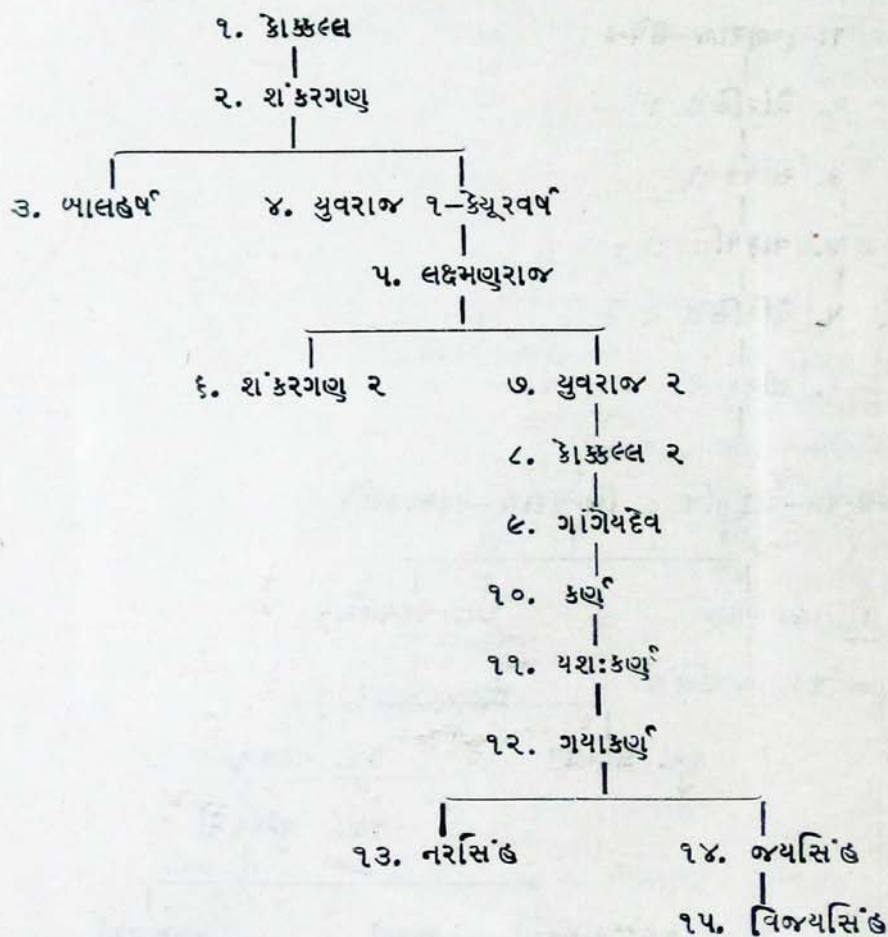 ૧. કોક્કલ્લ
૨. શંકરગણ
૩. બાલહર્ષ ૪. યુવરાજ ૧-કેયૂરવર્ષ
૫. લક્ષ્મણરાજ
૬. શંકરગણ ૨ ૭. યુવરાજ ૨
૮. કોક્કલ્લ ૨
૯. ગાંગેયદેવ
૧૦. કર્ણ
૧૧. યશ:કર્ણ
૧૨. ગયાકર્ણ
૧૩. નરસિંહ ૧૪. જયસિંહ
૧૫. વિજયસિંહ